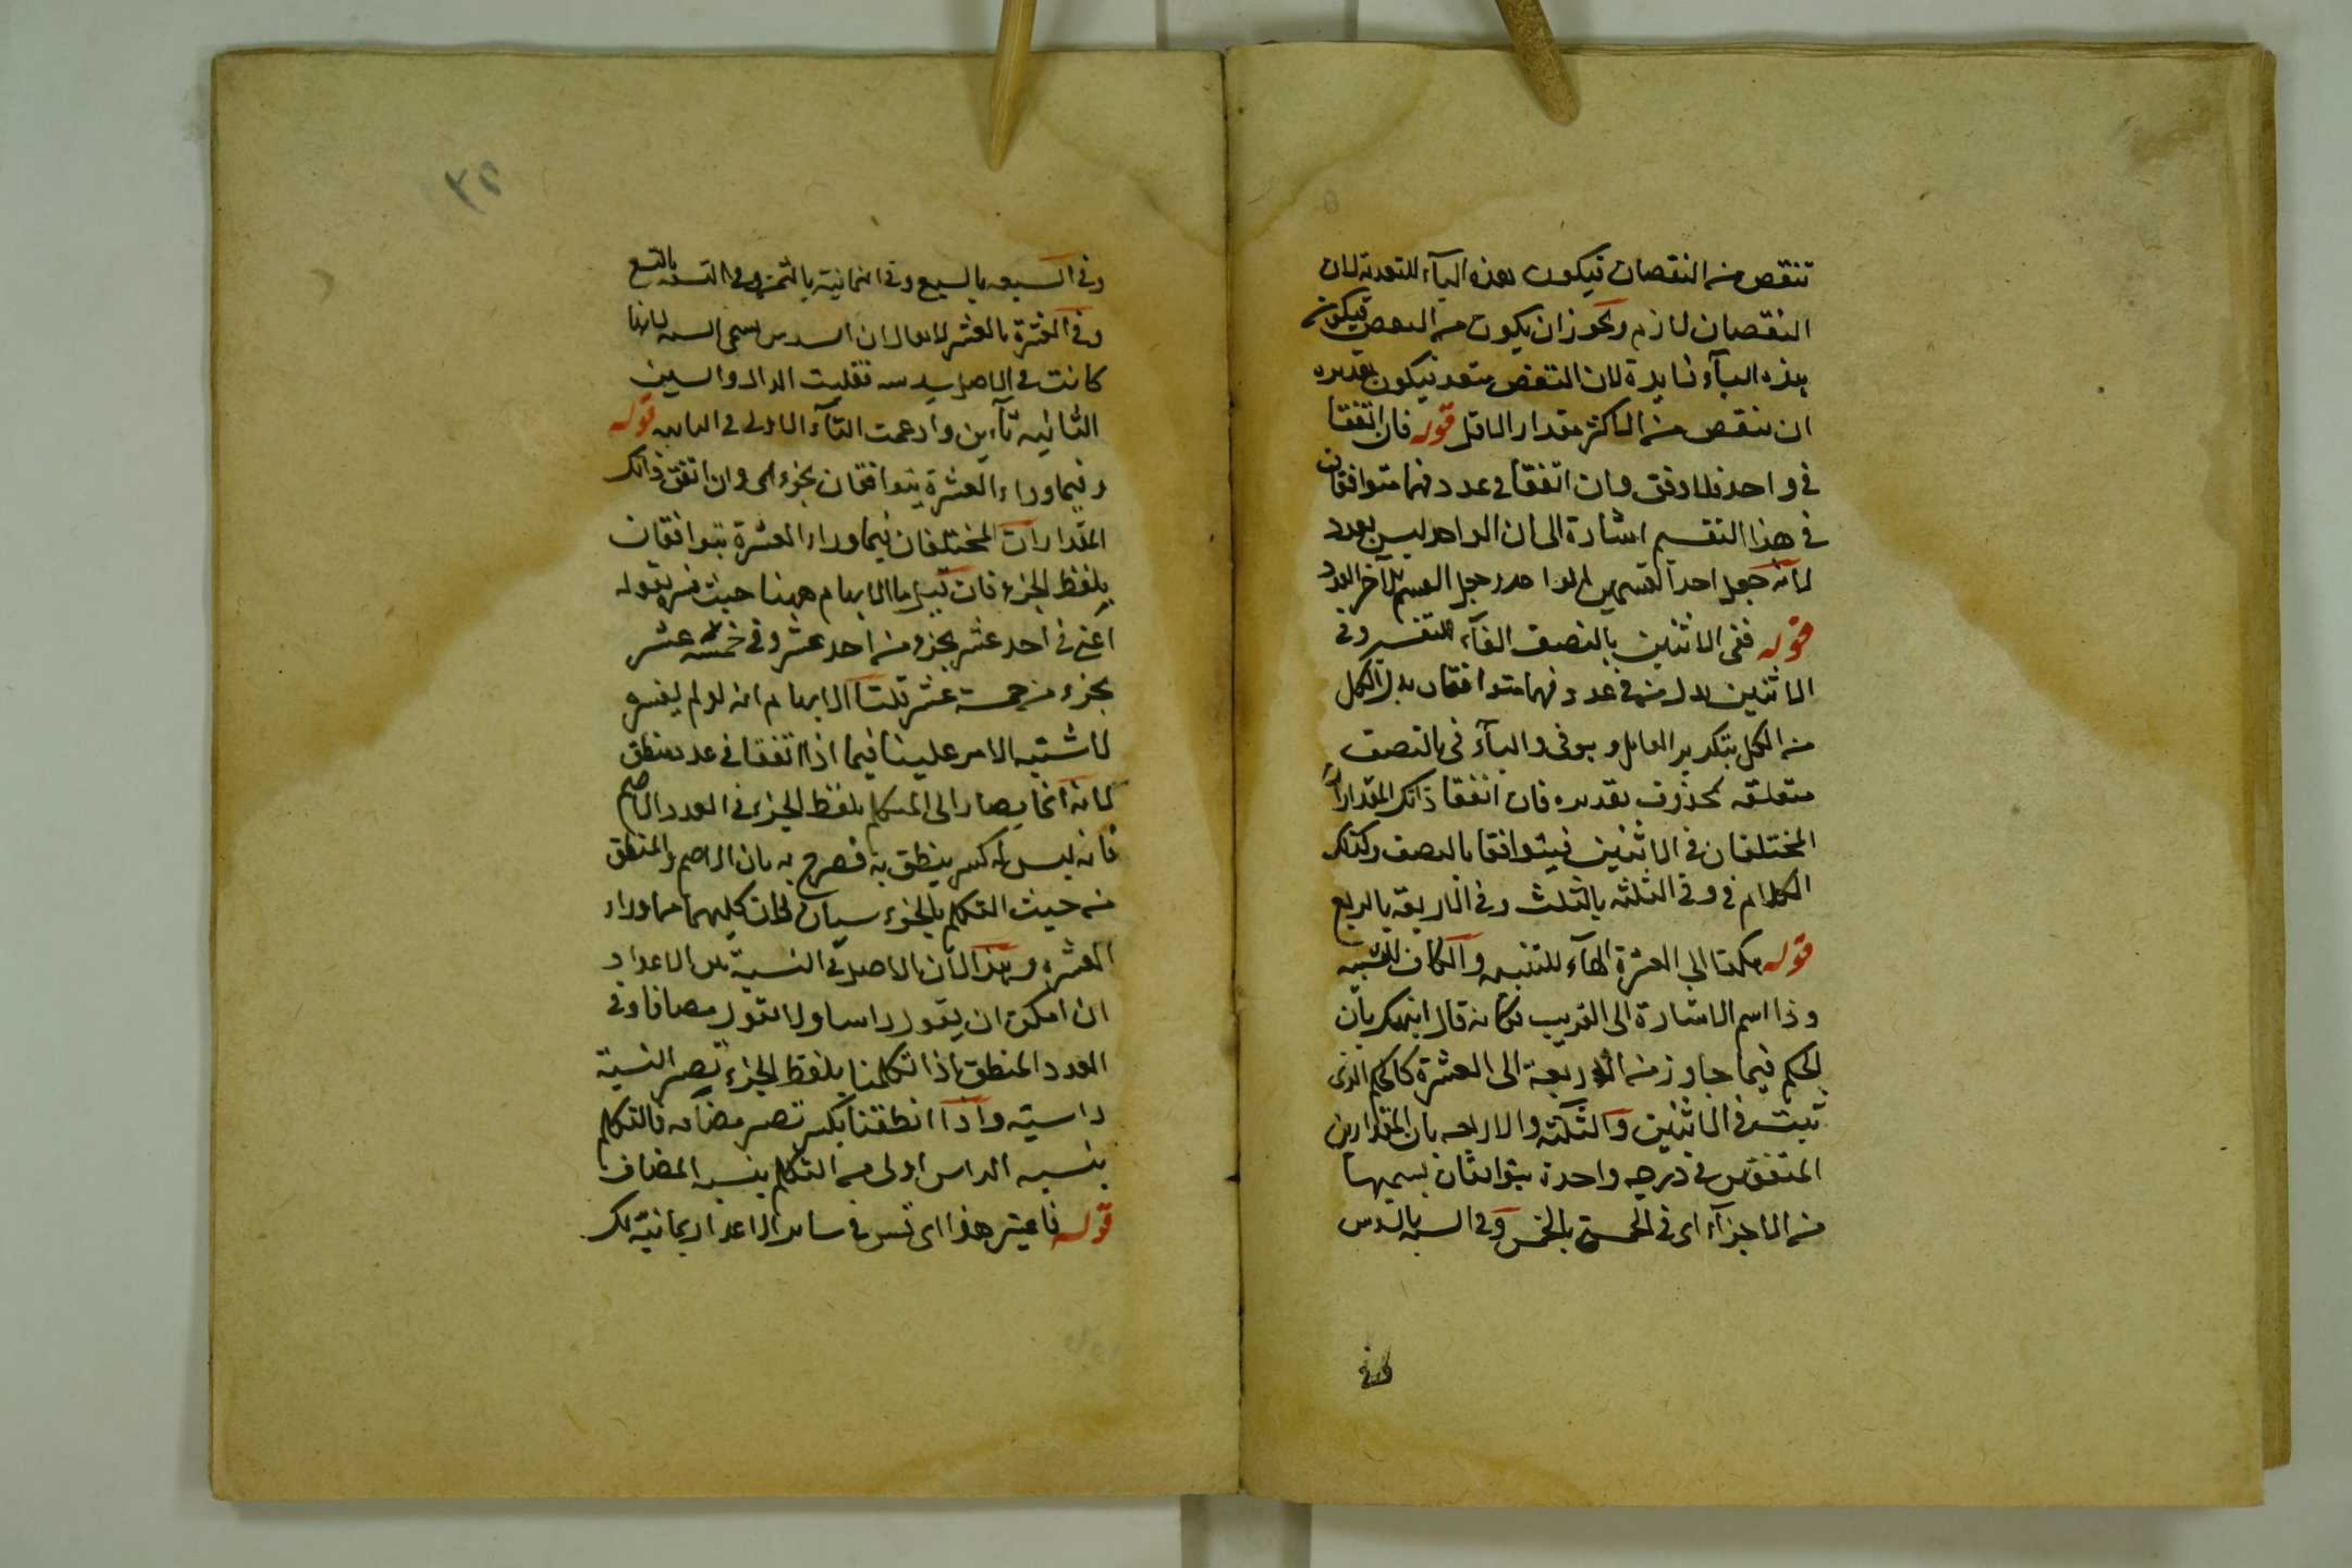 تنقص من النقصان فيكون هذه الباء للتعدية لان
النقصان لازم ويجوز ان يكون من النقص فيكون
هذه الباء زايدة لان النقص متعد فيكون تقديره
ان ينقص من الاكثر مقدار الاقل قوله فان اتفقا
في واحد فلا وفق وان اتفقا في عدد فهما متوافقان
في هذا التقسيم اشارة الى ان الواحد ليس بعدد
لانه جعل احد القسمين الواحد وجعل القسم الآخر العدد
قوله ففي الاثنين بالنصف الفاء للتفسير وفي
الاثنين بدل من في عدد فهما متوافقان بدل الكل
من الكل بتكرير العامل وهو في والباء في بالنصف
متعلقه بمحذوف تقديره فان اتفقا ذانك المقداران
المختلفان في الاثنين فيتوافقا بالنصف وكذلك
الكلام في وفي الثلثة بالثلث وفي الاربعة بالربع
قوله هكذا الى العشرة الهاء للتنبيه والكاف للتشبيه
وذا اسم الاشارة الى القريب فكانه قال انبهك بان
الحكم فيما جاوز من الاربعة الى العشرة كالحكم الذى
ثبت في الاثنين والثلثة والاربعة بان المقدارين
المتفقين في درجه واحدة يتوافقان بسميها
من الاجزاء اى في الخمسة بالخمس وفي الستة بالسدس
وفي السبعه بالسبع وفي الثمانية بالثمن وفي التسعه بالتسع
وفي العشرة بالعشر لا يقال ان السدس سمى الستة لانها
كانت في الاصل سدسه فقلبت الدال والسين
الثانيه تاءين وادغمت التاء الاولى في الثانيه قوله
وفيما وراء العشرة يتوافقان بجزء اى وان اتفق ذانك
المقداران المختلفان فيما وراء العشرة يتوافقان
بلفظ الجزء فان قيل ما الابهام ههنا حيث فسره بقوله
اعنى في احد عشر بجزء من احد عشر وفي خمسة عشر
بجزء من خمسة عشر قلنا الابهام انه لو لم يفسره
لاشتبه الامر علينا فيما اذا اتفقا في عدد منطق
لانه انما يصار الى التكلم بلفظ الجزء في العدد الاصم
فانه ليس له كسر ينطق به فصرح به بان الاصم والمنطق
من حيث التكلم بالجزء سيان لان كليهما مما وراء
العشرة وهذا لان الاصل في النسبة بين الاعداد
ان امكن ان يقول راسا ولا تقول مضافا وفي
العدد المنطق اذا تكلمنا بلفظ الجزء تصير النسبة
راسيته واذا انطقنا بكسر تصير مضافه فالتكلم
بنسبه الراس اولى من التكلم بنسبه المضاف
قوله فاعتبر هذا اى قس في ساير الاعداد